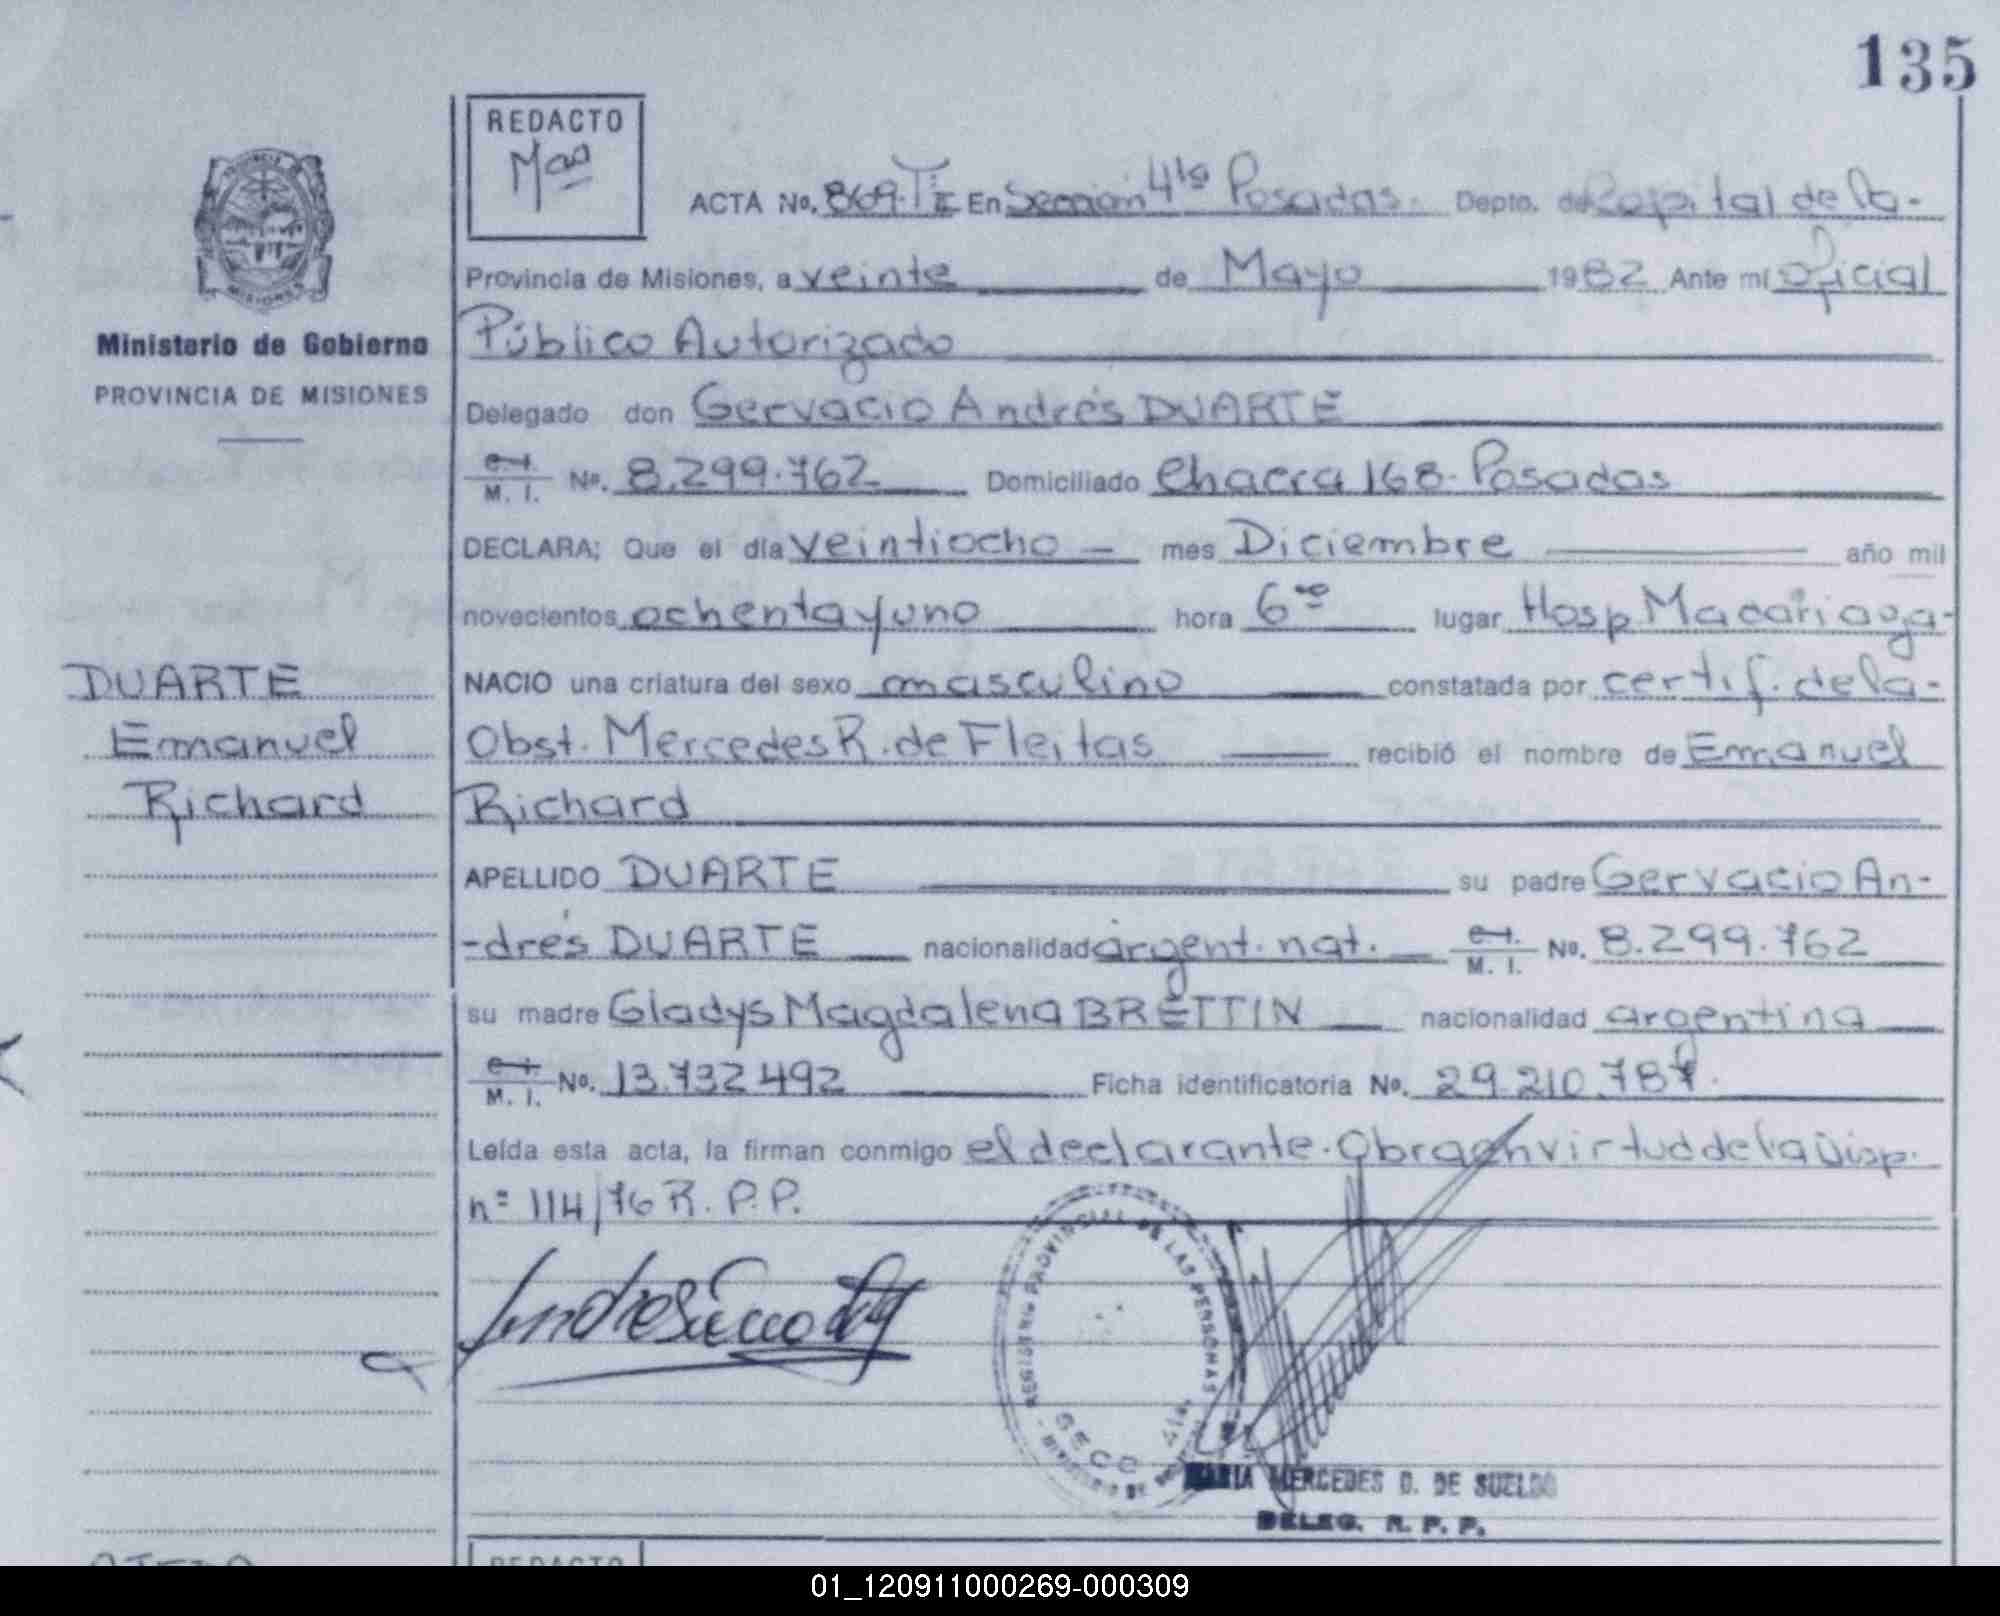 135
REDACTO
Mas
ACTA No. 869.T II En Sección 4ta Posadas. Depto. de Capital de la-
Provincia de Misiones, a veinte de Mayo 1982 Ante mí Oficial
Ministerio de Gobierno
PROVINCIA DE MISIONES
Público Autorizado
Delegado don Gervacio Andrés DUARTE
M. I. No. 8.299.762 Domiciliado Chacra 168. Posadas
DECLARA; Que el día veintiocho - mes Diciembre año mil
novecientos ochenta y uno hora 6 lugar Hosp Madariaga-
DUARTE
Emanuel
Richard
NACIO una criatura del sexo masculino constatada por certif. de la-
Obst. Mercedes R. de Fleitas recibió el nombre de Emanuel
Richard
APELLIDO DUARTE su padre Gervacio An-
-drés DUARTE nacionalidad argent. nat. M. I. No. 8.299.762
su madre Gladys Magdalena BRETTIN nacionalidad argentina
M. I. No. 13.732492 Ficha identificatoria No. 29.210.787.
Leída esta acta, la firman conmigo el declarante. Obra en virtud de la Disp.
nº 114/76 R. P. P.
REGISTRO PROVINCIAL DE LAS PERSONAS
SECC 4ta.
MARIA MERCEDES D. DE SUELDO
DELEG. R. P. P.
REDACTO
01_120911000269-000309